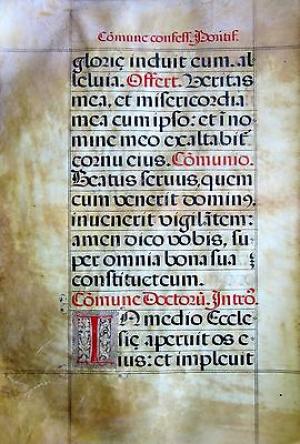 Cõmune confess. Pontif.
glorię induit eum. al
leluia. Offert. Veritas
mea, et misericordia
mea cum ipso: et i no
mine meo exaltabit̃
cornu eius. Cõmunio.
Beatus seruus, quem
cum venerit domin9,
inuenerit vigilãtem:
amen dico vobis, su
per omnia bona sua
constituet eum.
Cõmune Doctorũ. Intro.
IN medio Eccle
się aperuit os e
ius: et impleuit